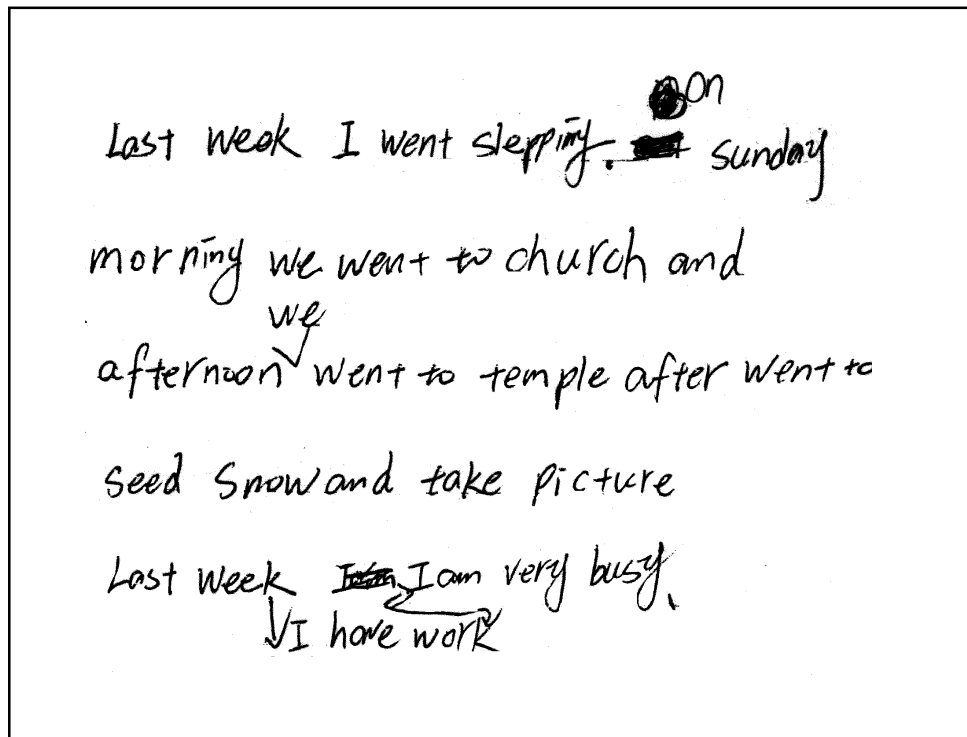 Last week I went slepping. On sunday
morning we went to church and
afternoon we went to temple after went to
seed snow and take picture
Last week I have work I am very busy.